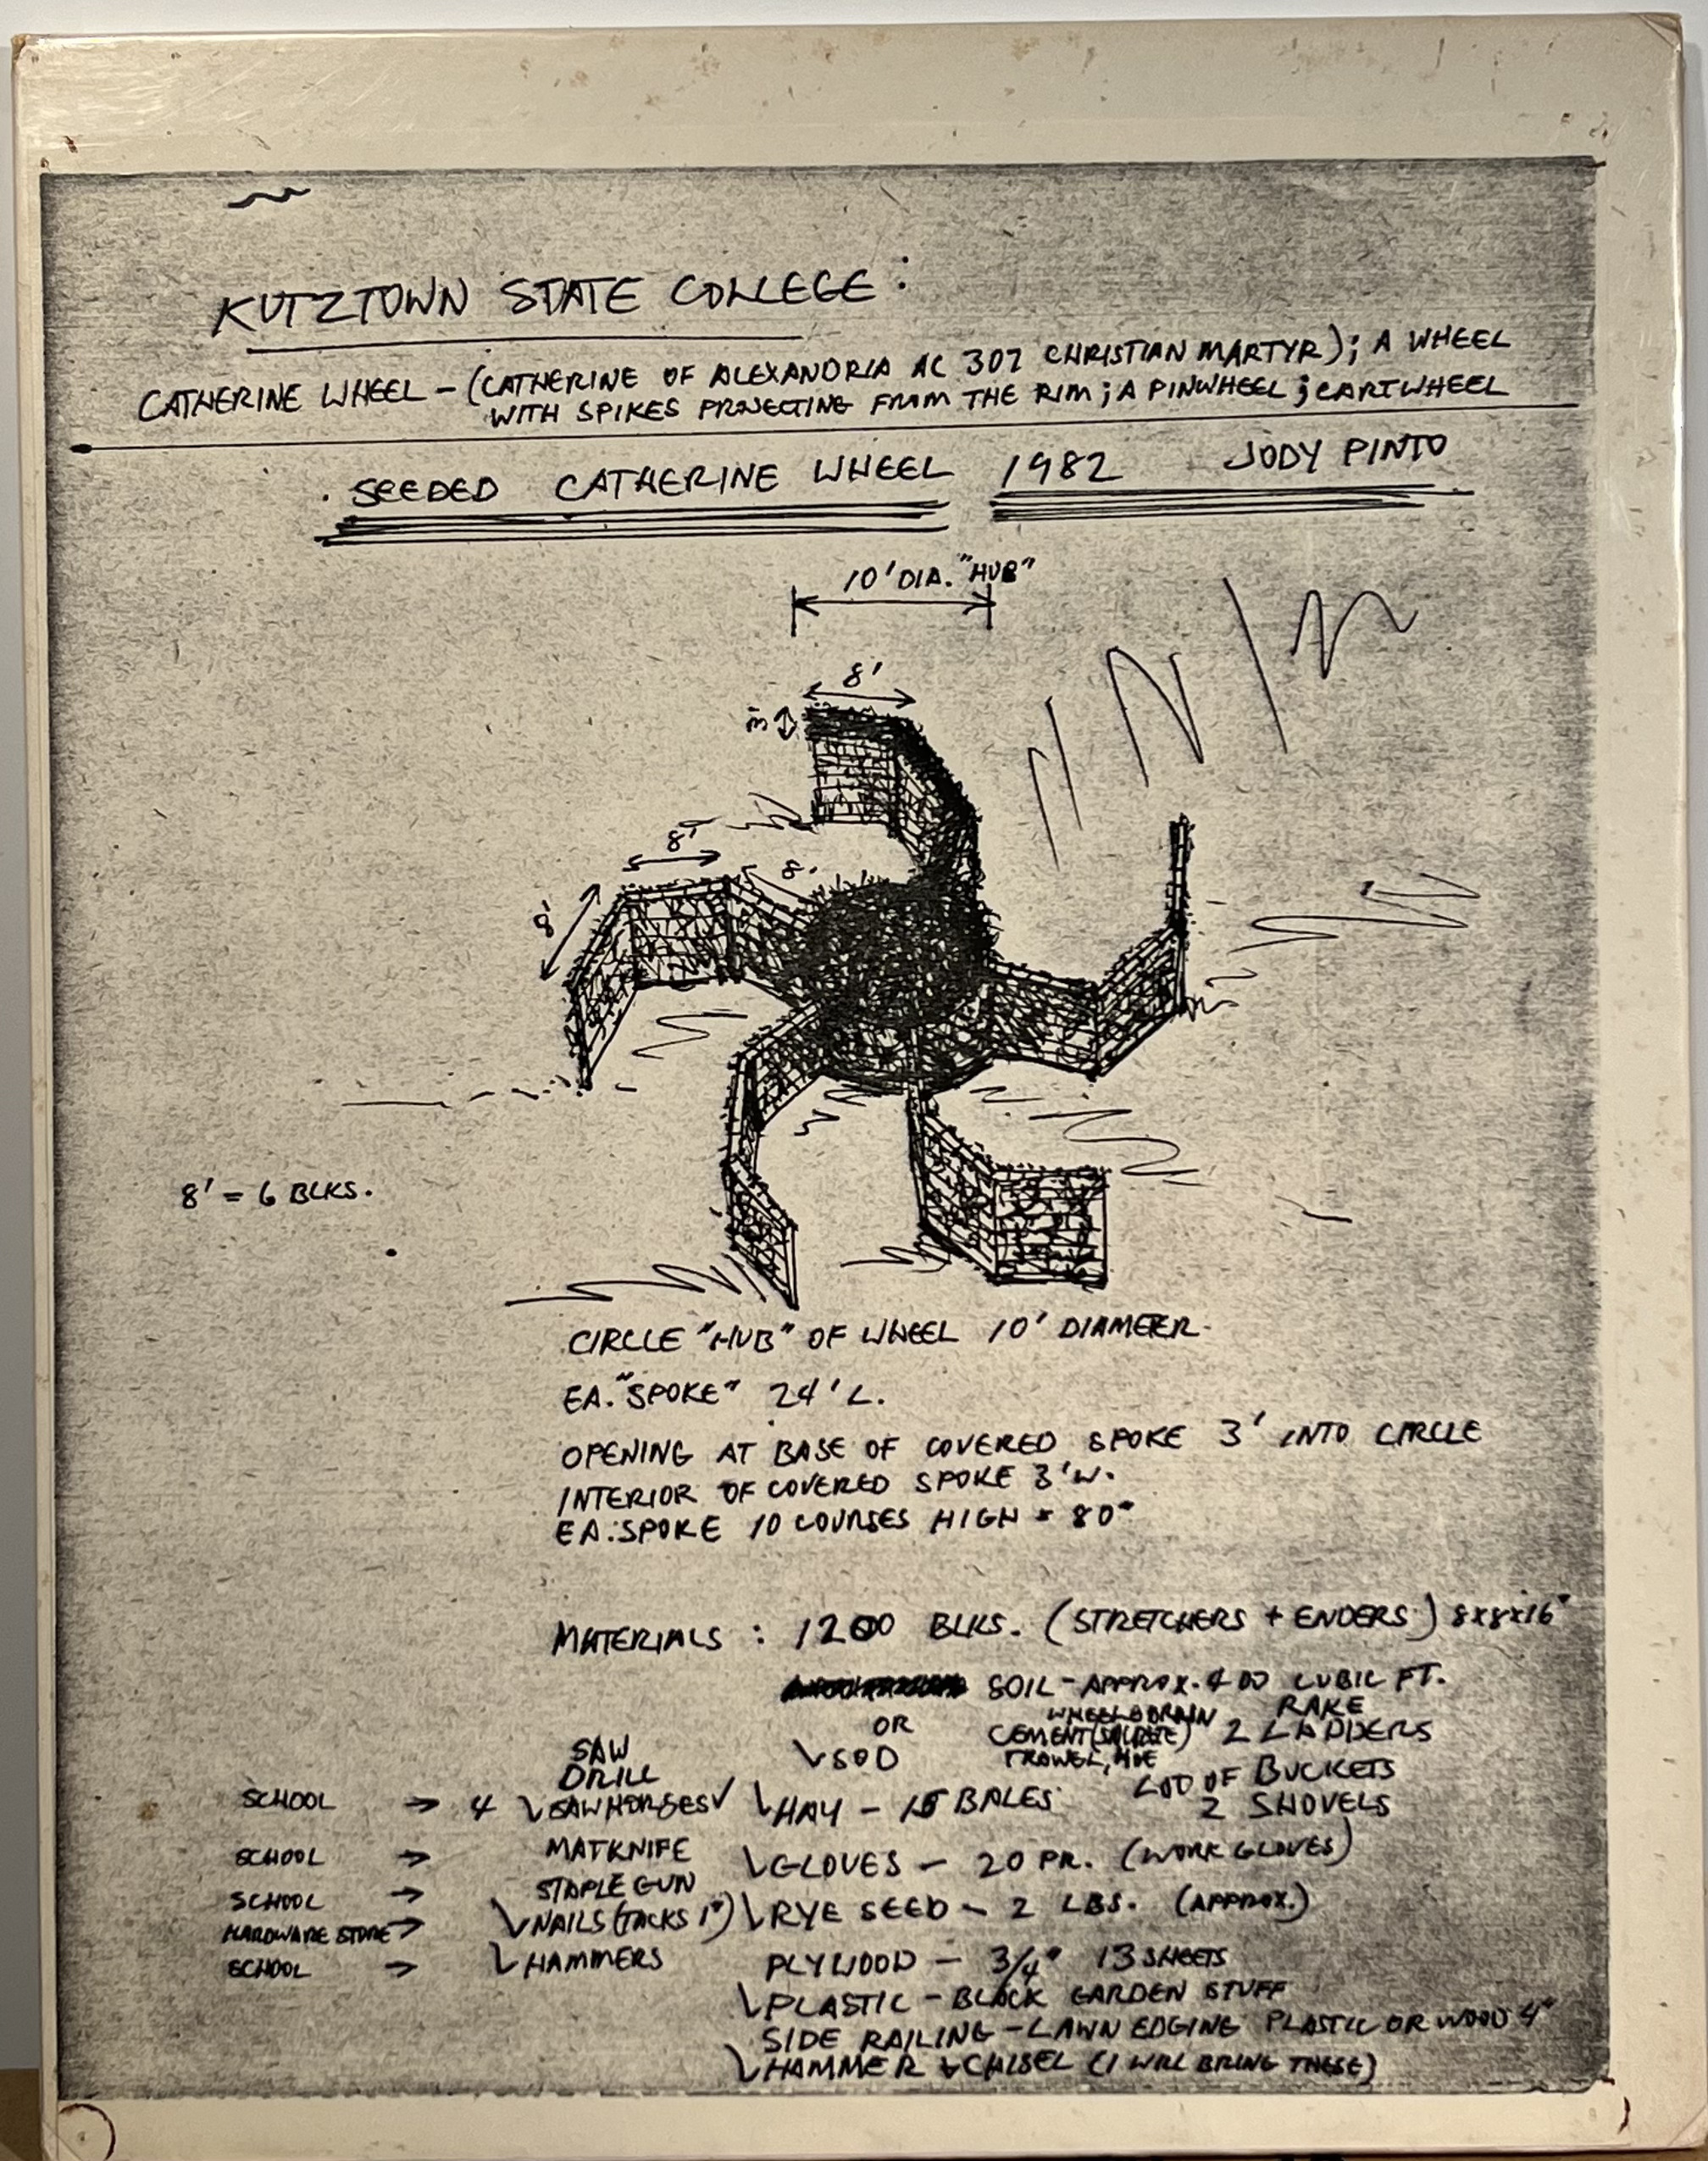 KUTZTOWN STATE COLLEGE:
CATHERINE WHEEL - (CATHERINE OF ALEXANDRIA AC 307 CHRISTIAN MARTYR); A WHEEL
WITH SPIKES PROJECTING FROM THE RIM; A PINWHEEL; CARTWHEEL
SEEDED CATHERINE WHEEL 1982 JODY PINTO
10' DIA. "HUB"
8'
8'
8'
8'
8' = 6 BLKS.
CIRCLE "HUB" OF WHEEL 10' DIAMETER.
EA. "SPOKE" 24' L.
OPENING AT BASE OF COVERED SPOKE 3' INTO CIRCLE
INTERIOR OF COVERED SPOKE 3' W.
EA. SPOKE 10 COURSES HIGH = 80"
MATERIALS: 1200 BLKS. (STRETCHERS + ENDERS) 8x8x16"
SOIL - APPROX. 400 CUBIC FT.
OR
RAKE
CEMENT
2 LADDERS
SOD
TROWEL,
SAW
DRILL
LOD OF BUCKETS
SCHOOL → 4 SAWHORSES ✓
HAY - 15 BALES
2 SHOVELS
SCHOOL → MATKNIFE
GLOVES - 20 PR. (WORK GLOVES)
SCHOOL → STAPLE GUN
HARDWARE STORE → NAILS (TACKS 1")
RYE SEED - 2 LBS. (APPROX.)
SCHOOL → HAMMERS
PLYWOOD - 3/4" 13 SHEETS
PLASTIC - BLACK GARDEN STUFF
SIDE RAILING - LAWN EDGING PLASTIC OR WOOD 4"
HAMMER + CHISEL (I WILL BRING THESE)